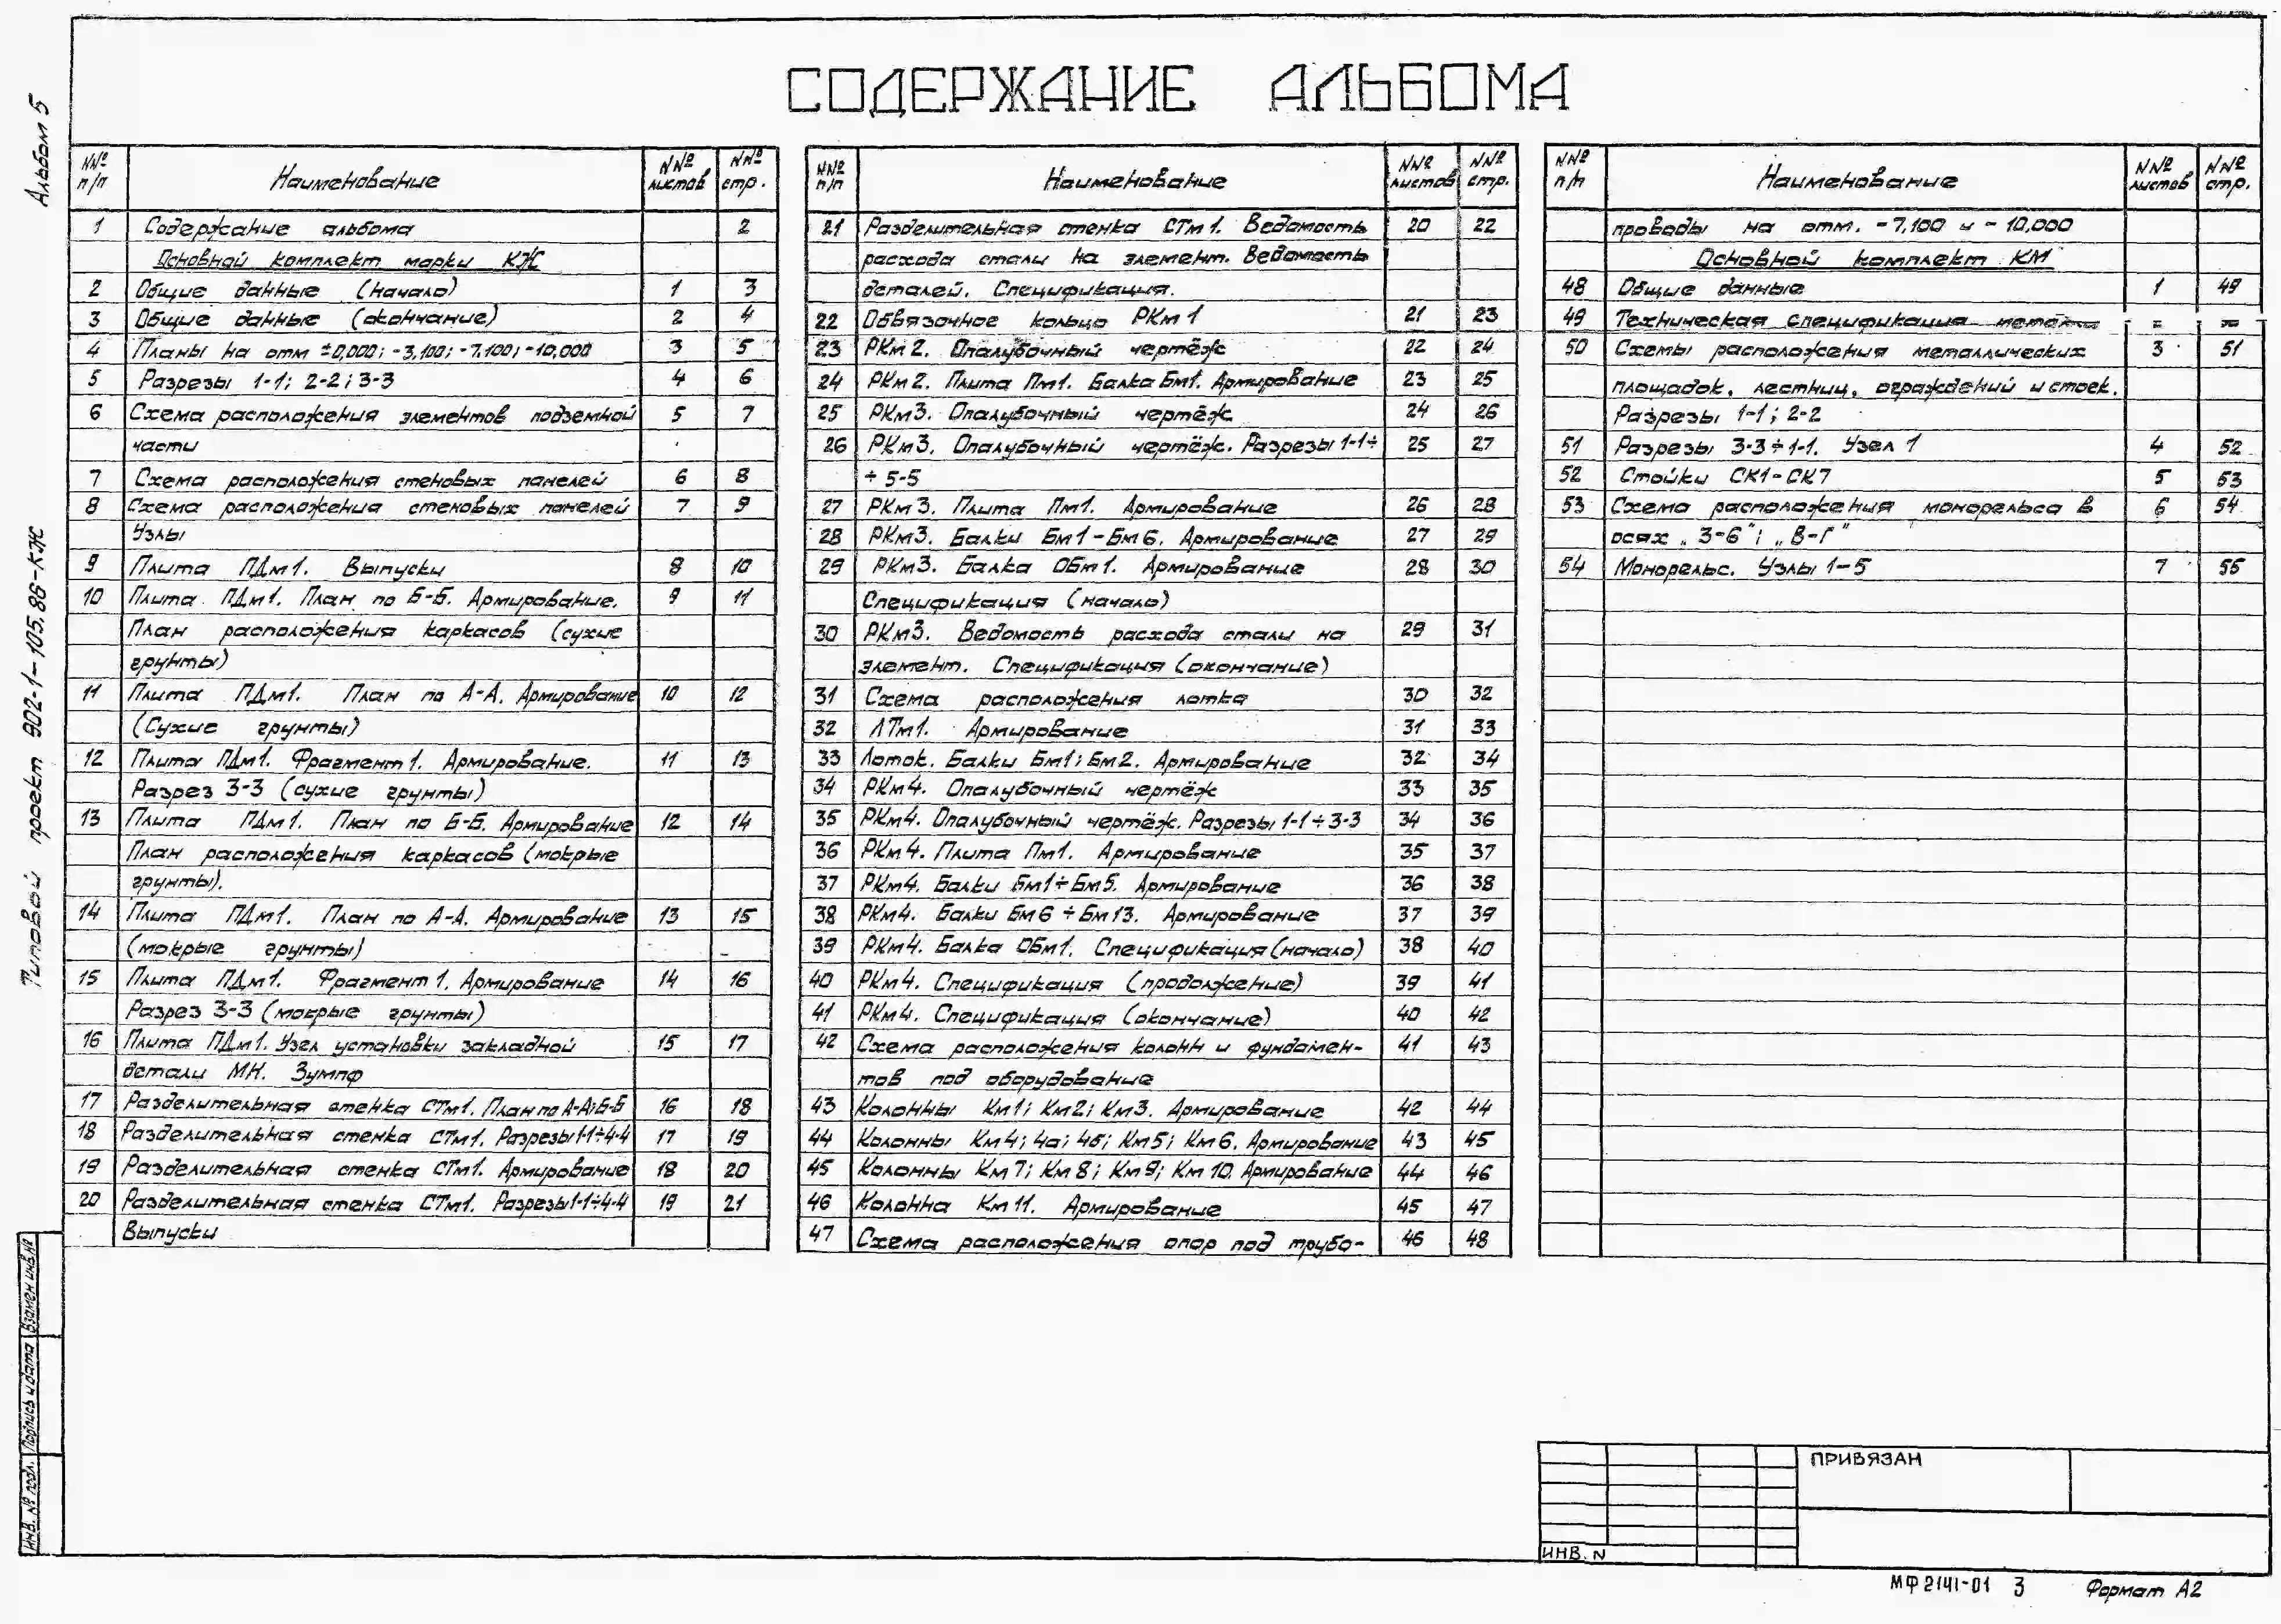 СОДЕРЖАНИЕ АЛЬБОМА
Альбом 5
Типовой проект 902-1-105.86-КЖ
NN№ п/п Наименование NN№ листов NN№ стр.
1 Содержание альбома 2
Основной комплект марки КЖ
2 Общие данные (начало) 1 3
3 Общие данные (окончание) 2 4
4 Планы на отм ±0,000; -3,100; -7,100; -10,000 3 5
5 Разрезы 1-1; 2-2; 3-3 4 6
6 Схема расположения элементов подземной 5 7
части
7 Схема расположения стеновых панелей 6 8
8 Схема расположения стеновых панелей 7 9
Узлы
9 Плита ПДм1. Выпуски 8 10
10 Плита ПДм1. План по Б-Б. Армирование. 9 11
План расположения каркасов (сухие
грунты)
11 Плита ПДм1. План по А-А. Армирование 10 12
(Сухие грунты)
12 Плита ПДм1. Фрагмент 1. Армирование. 11 13
Разрез 3-3 (сухие грунты)
13 Плита ПДм1. План по Б-Б. Армирование 12 14
План расположения каркасов (мокрые
грунты).
14 Плита ПДм1. План по А-А. Армирование 13 15
(мокрые грунты)
15 Плита ПДм1. Фрагмент 1. Армирование 14 16
Разрез 3-3 (мокрые грунты)
16 Плита ПДм1. Узел установки закладной 15 17
детали МН. Зумпф
17 Разделительная стенка СТм1. План по А-А; Б-Б 16 18
18 Разделительная стенка СТм1. Разрезы 1-1÷4-4 17 19
19 Разделительная стенка СТм1. Армирование 18 20
20 Разделительная стенка СТм1. Разрезы 1-1÷4-4 19 21
Выпуски
NN№ п/п Наименование NN№ листов NN№ стр.
21 Разделительная стенка СТм1. Ведомость 20 22
расхода стали на элемент. Ведомость
деталей. Спецификация.
22 Обвязочное кольцо РКм1 21 23
23 РКм2. Опалубочный чертёж 22 24
24 РКм2. Плита Пм1. Балка Бм1. Армирование 23 25
25 РКм3. Опалубочный чертёж 24 26
26 РКм3. Опалубочный чертёж. Разрезы 1-1÷ 25 27
÷ 5-5
27 РКм3. Плита Пм1. Армирование 26 28
28 РКм3. Балки Бм1-Бм6. Армирование 27 29
29 РКм3. Балка ОБм1. Армирование 28 30
Спецификация (начало)
30 РКм3. Ведомость расхода стали на 29 31
элемент. Спецификация (окончание)
31 Схема расположения лотка 30 32
32 ЛТм1. Армирование 31 33
33 Лоток. Балки Бм1; Бм2. Армирование 32 34
34 РКм4. Опалубочный чертёж 33 35
35 РКм4. Опалубочный чертёж. Разрезы 1-1÷3-3 34 36
36 РКм4. Плита Пм1. Армирование 35 37
37 РКм4. Балки Бм1÷Бм5. Армирование 36 38
38 РКм4. Балки Бм6÷Бм13. Армирование 37 39
39 РКм4. Балка ОБм1. Спецификация (начало) 38 40
40 РКм4. Спецификация (продолжение) 39 41
41 РКм4. Спецификация (окончание) 40 42
42 Схема расположения колонн и фундамен- 41 43
тов под оборудование
43 Колонны Км1; Км2; Км3. Армирование 42 44
44 Колонны Км4; 4а; 4б; Км5; Км6. Армирование 43 45
45 Колонны Км7; Км8; Км9; Км10. Армирование 44 46
46 Колонна Км11. Армирование 45 47
47 Схема расположения опор под трубо- 46 48
NN№ п/п Наименование NN№ листов NN№ стр.
проводы на отм. -7,100 и -10,000
Основной комплект КМ
48 Общие данные 1 49
49 Техническая спецификация
50 Схемы расположения металлических 3 51
площадок, лестниц, ограждений и стоек.
Разрезы 1-1; 2-2
51 Разрезы 3-3÷1-1. Узел 1 4 52
52 Стойки СК1-СК7 5 53
53 Схема расположения монорельса в 6 54
осях „3-6"; „В-Г"
54 Монорельс. Узлы 1-5 7 55
Взамен инв.№
Подпись и дата
Инв. № подл.
ПРИВЯЗАН
ИНВ. N
МФ 2141-01 3 Формат А2